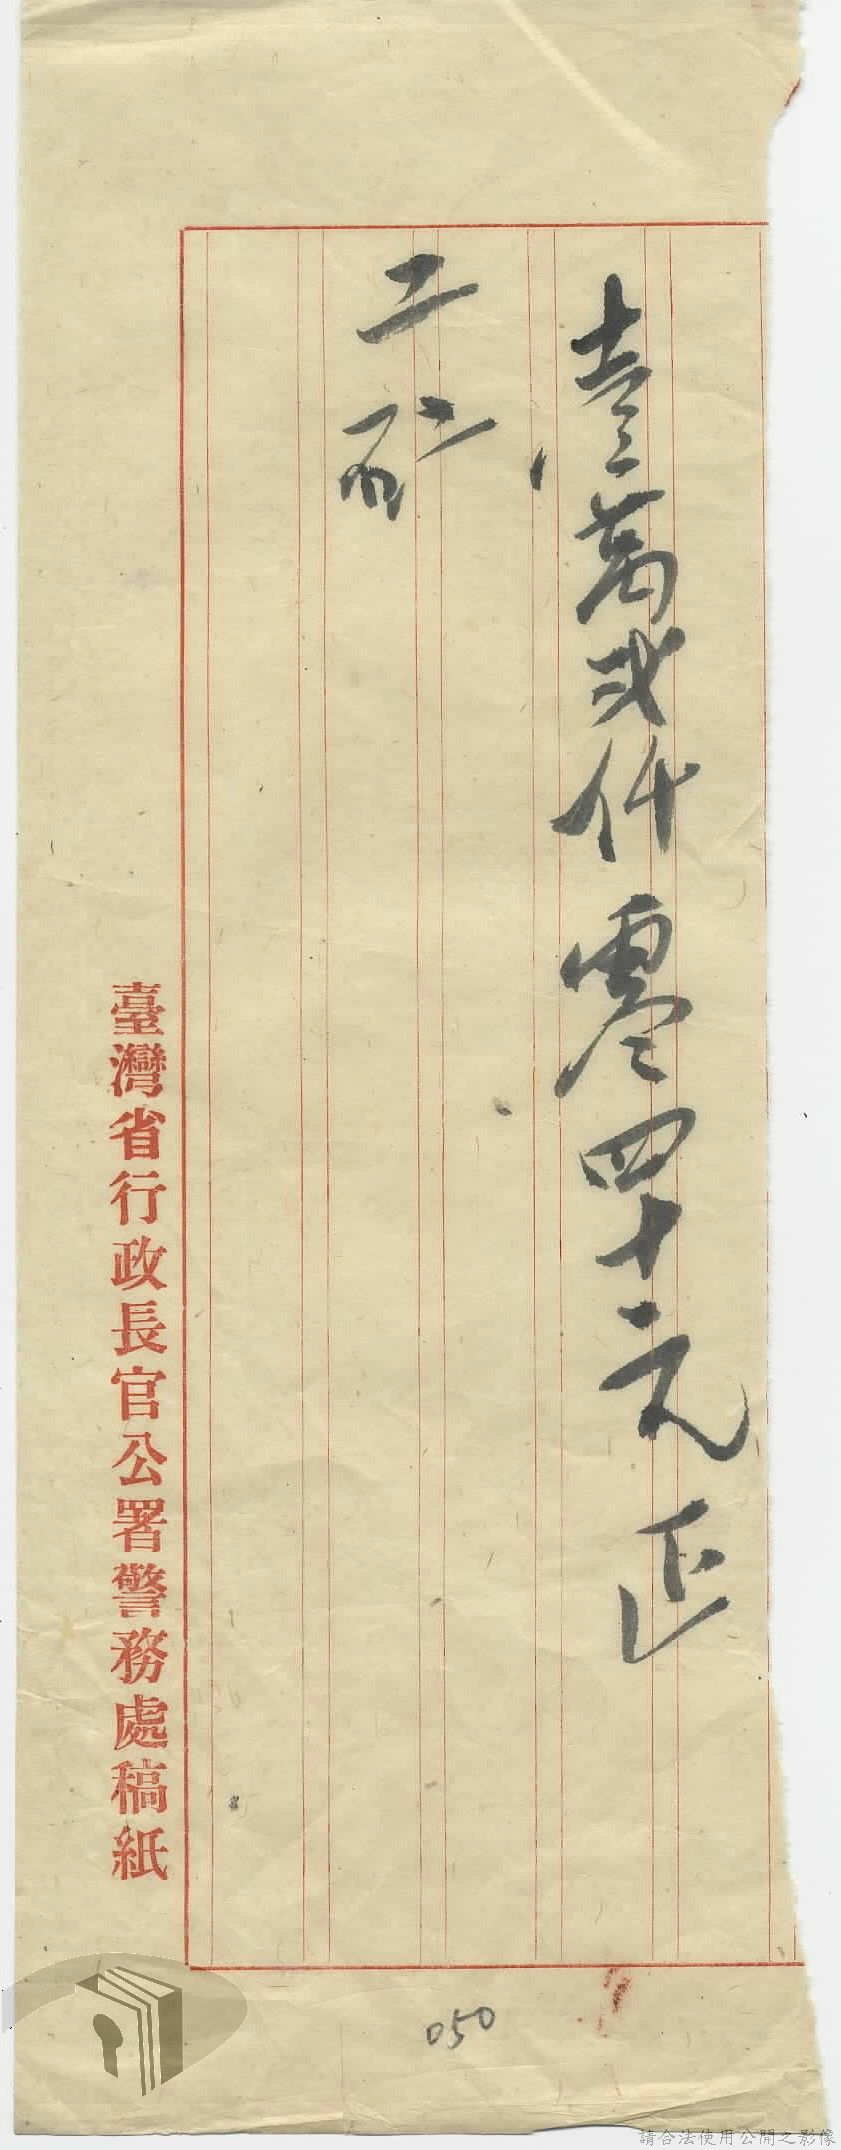 壹萬弍仟零四十元正
工矿
臺灣省行政長官公署警務處稿紙
050
請合法使用公開之影像